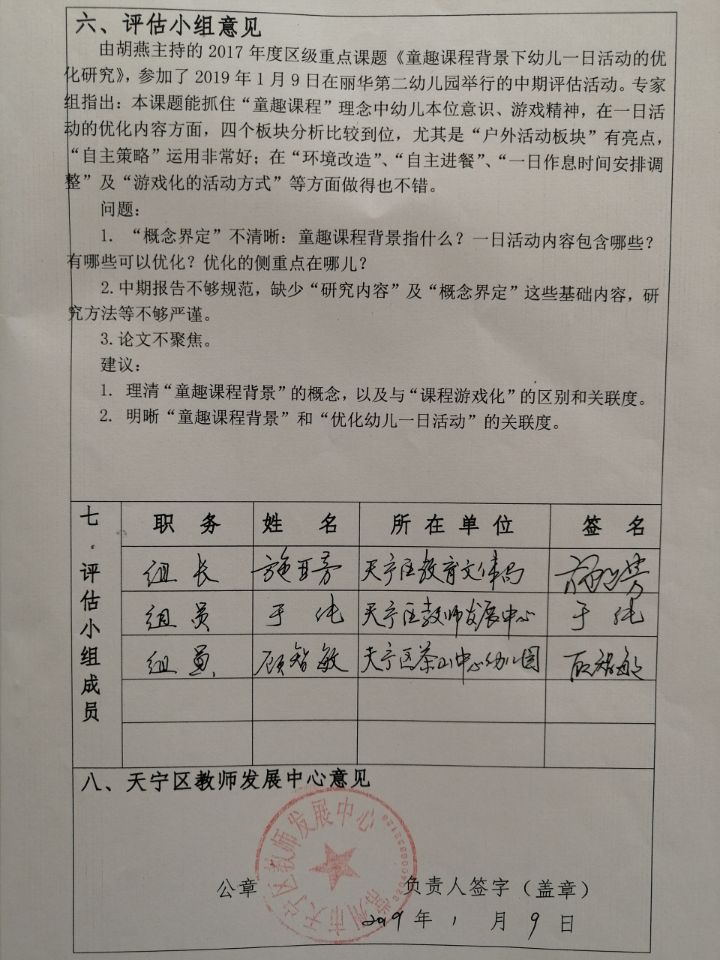 六、评估小组意见
由胡燕主持的 2017 年度区级重点课题《童趣课程背景下幼儿一日活动的优
化研究》，参加了 2019 年 1 月 9 日在丽华第二幼儿园举行的中期评估活动。专家
组指出：本课题能抓住“童趣课程”理念中幼儿本位意识、游戏精神，在一日活
动的优化内容方面，四个板块分析比较到位，尤其是“户外活动板块”有亮点，
“自主策略”运用非常好；在“环境改造”、“自主进餐”、“一日作息时间安排调
整”及“游戏化的活动方式”等方面做得也不错。
问题：
1. “概念界定”不清晰：童趣课程背景指什么？一日活动内容包含哪些？
有哪些可以优化？优化的侧重点在哪儿？
2.中期报告不够规范，缺少“研究内容”及“概念界定”这些基础内容，研
究方法等不够严谨。
3.论文不聚焦。
建议：
1. 理清“童趣课程背景”的概念，以及与“课程游戏化”的区别和关联度。
2. 明晰“童趣课程背景”和“优化幼儿一日活动”的关联度。
七、评估小组成员
职 务 姓 名 所 在 单 位 签 名
组长 天宁区教育文体局
组员 于纯 天宁区教师发展中心 于纯
组员 顾智敏 天宁区茶山中心幼儿园 顾智敏
八、天宁区教师发展中心意见
常州市天宁区教师发展中心
公章 负责人签字（盖章）
2019 年 1 月 9 日